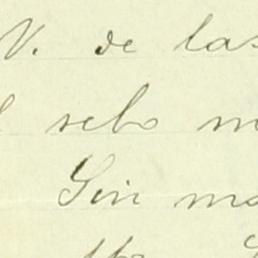 V. de las
sebo m
Sin ma